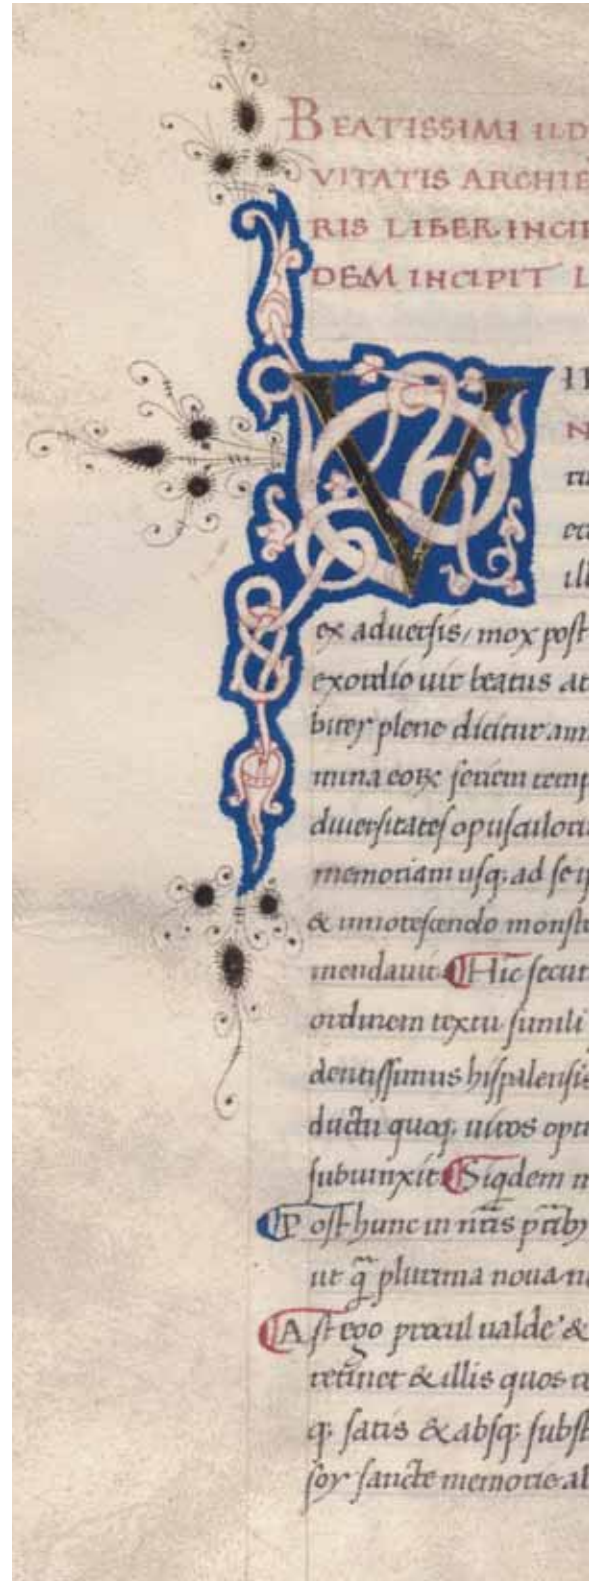 BEATISSIMI ILD
VITATIS ARCHIE
RIS LIBER INCIP
DEM INCIPIT L
V
N
ex aduersis, mox post
exordio uir beatus at
plene dicitur
seriem temp
diuersitates opusculoru
memoriam usq; ad se
& innotescendo monstr
mendauit. Hic secut
ordinem textu simili
dentissimus hispalensis
ductu quoq; uiros opti
subiunxit. Siqdem
Post hunc in
ut plurima noua
Ast ego procul ualde &
retinet & illis quos
q; satis & absq; subst
sancte memorie